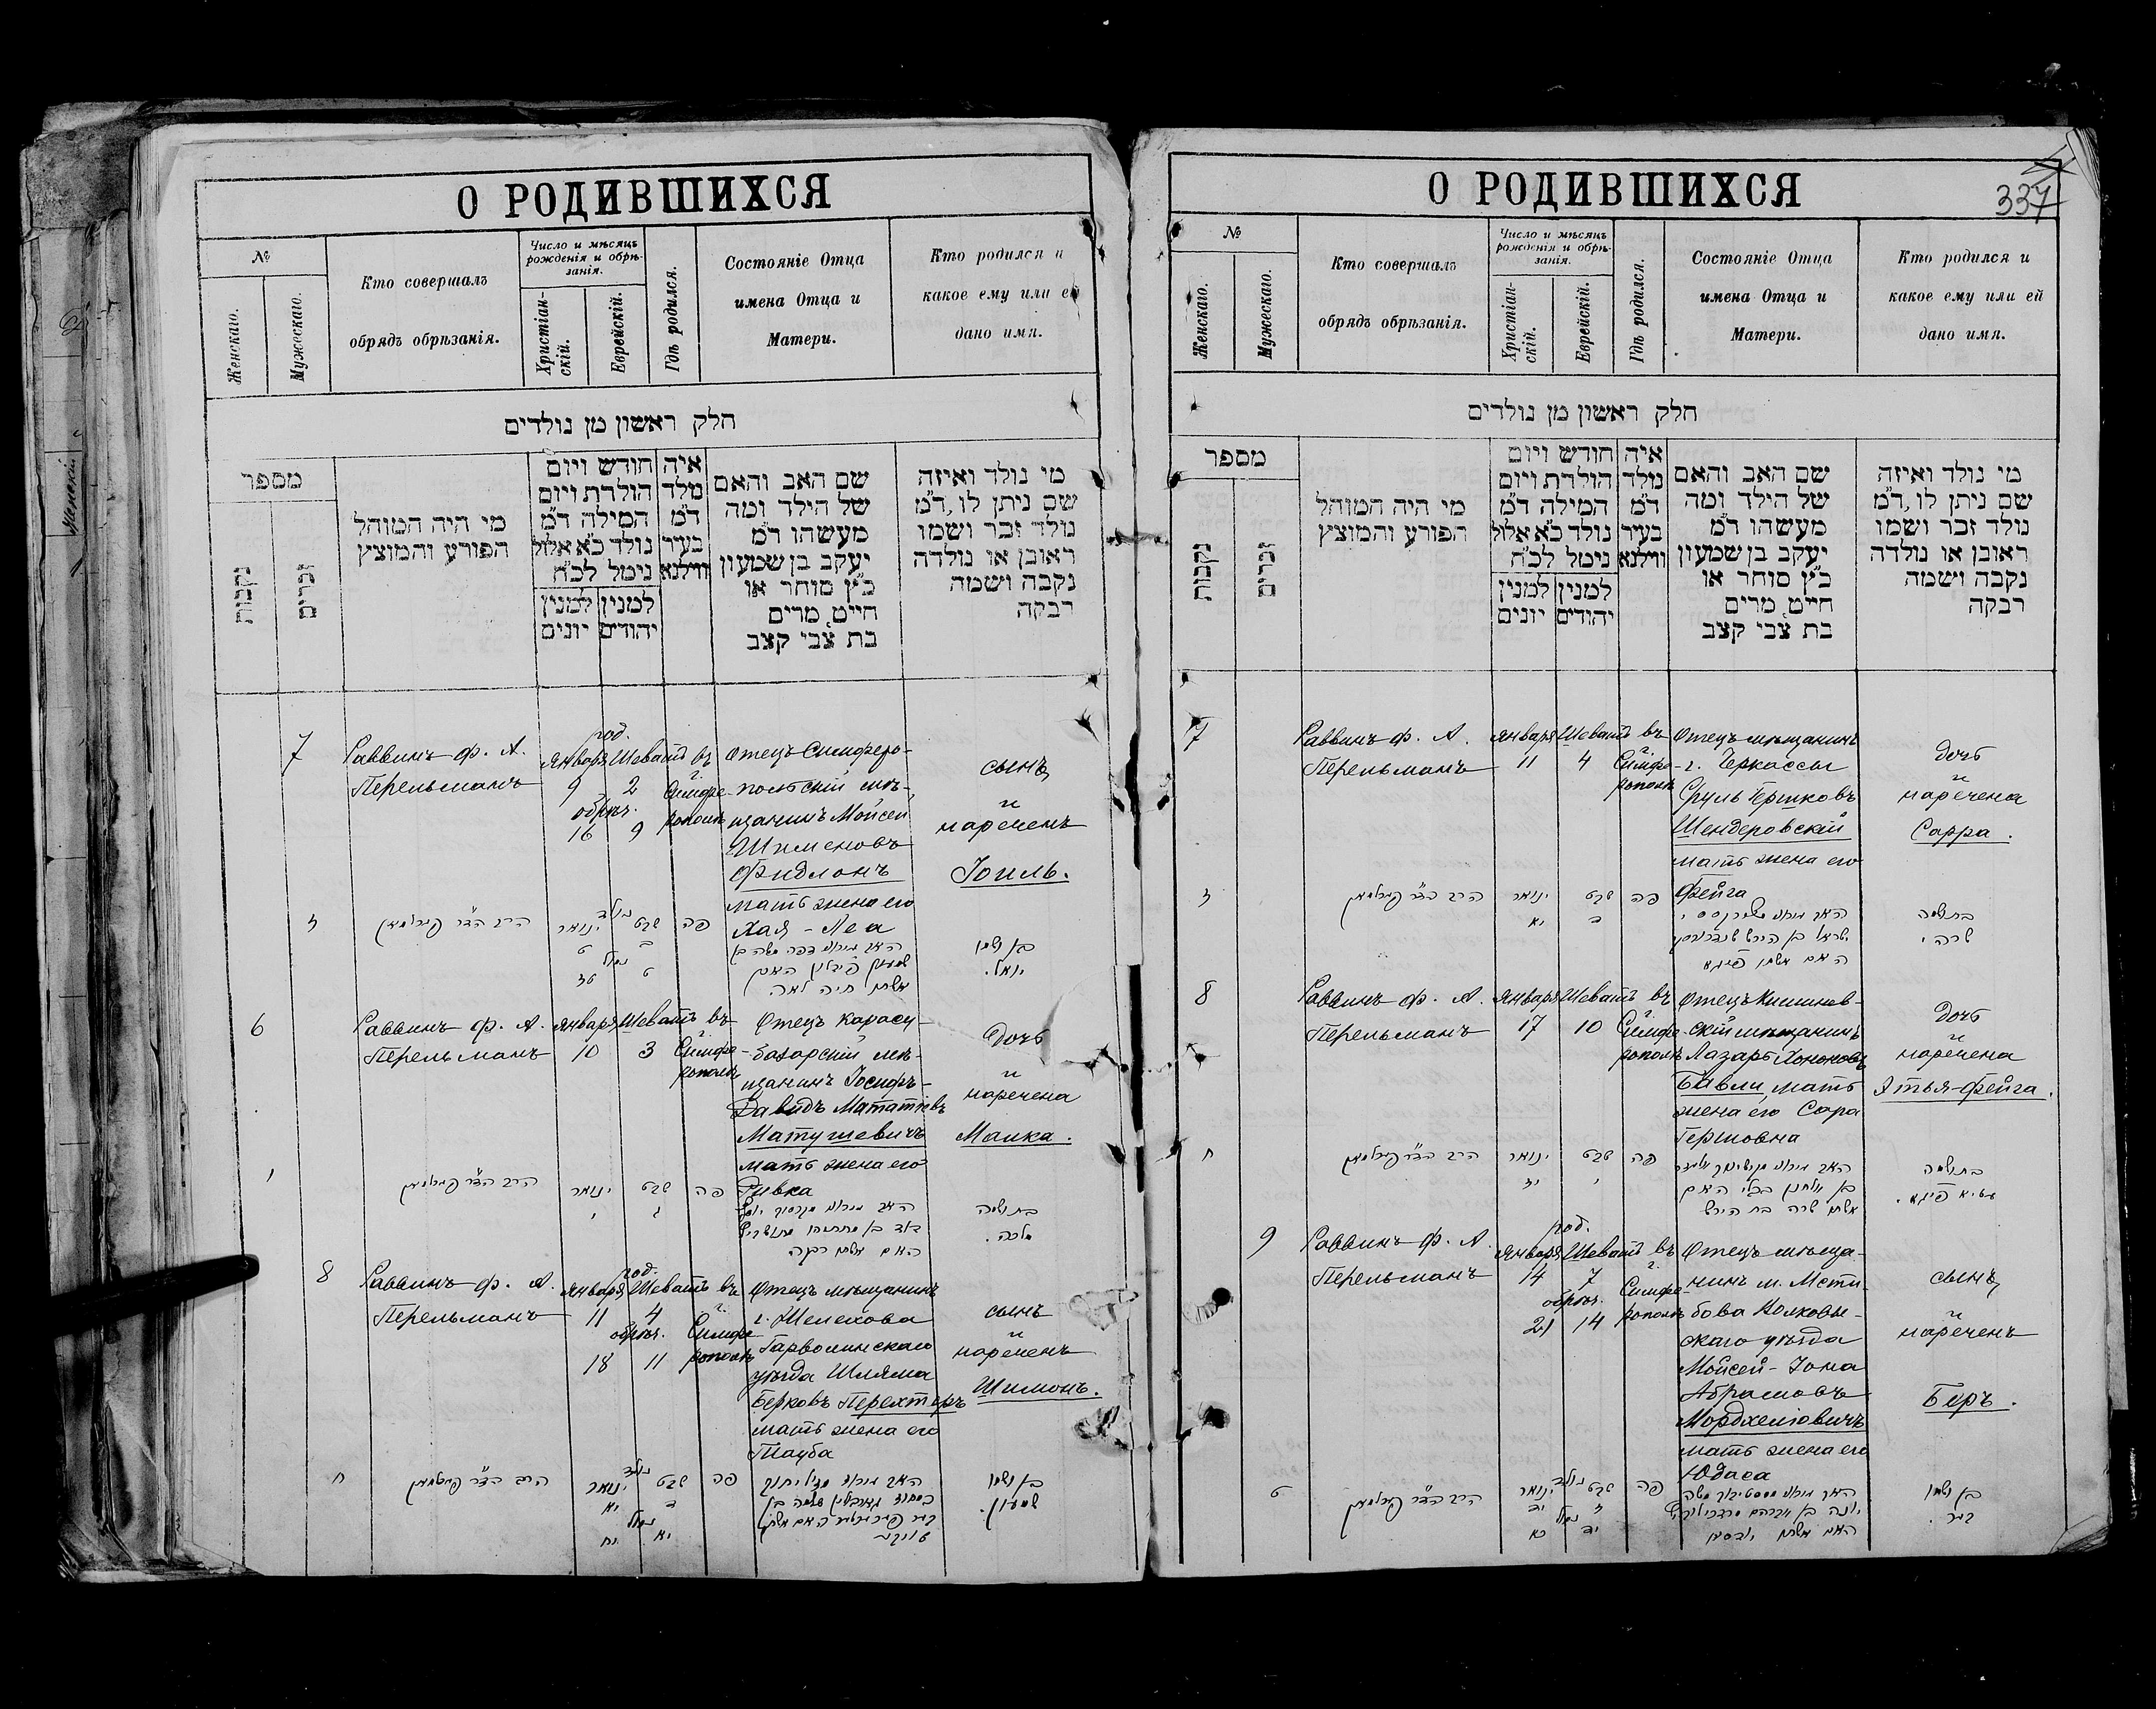 О РОДИВШИХСЯ
№
Женскаго.
Мужескаго.
Кто совершалъ
обрядъ обрѣзанія.
Число и мѣсяцъ
рожденія и обрѣ-
занія.
Христіан-
скій.
Еврейскій.
Гдѣ родился.
Состояніе Отца
имена Отца и
Матери.
Кто родился и
какое ему или ей
дано имя.
חלק ראשון מן נולדים
מספר
נקבות
זכרים
מי היה המוהל
הפורע והמוצץ
חודש ויום
הולדת ויום
המילה ד"מ
נולד כ"א אלול
נימל לכ"ח
למנין למנין
יהודים יונים
איה
מלד
ד"מ
בעיר
ווילנא
שם האב והאם
של הילד ומה
מעשהו ד"מ
יעקב בן שמעון
כ"ץ סוחר או
חייט, מרים
בת צבי קצב
מי נולד ואיזה
שם ניתן לו, ד"מ
נולד זכר ושמו
ראובן או נולדה
נקבה ושמה
רבקה
7
Раввинъ Ф. А.
Перельманъ
род.
Января Шеватъ
9 2
обрѣз.
16 9
въ
г.
Симфе-
рополѣ
Отецъ Симферо-
польскій мѣ-
щанинъ Мойсей
Шименовъ
Фидлонъ
мать жена его
Хая-Леа
сынъ
и
нареченъ
Іоиль.
ז
הרב הד"ר פערלמאן
נולד
ינואר שבט
ט ב
נמול
טז ט
פה
האב
משה בן
שמעון פידלון האם
אשתו חיה לאה
בן ושמו
יואל.
6
Раввинъ Ф. А.
Перельманъ
Января Шеватъ
10 3
въ
г.
Симфе-
рополѣ
Отецъ Карасу-
базарскій мѣ-
щанинъ Іосифъ-
Давидъ Мататіевъ
Матушевичъ
мать жена его
Ривка
дочь
и
наречена
Малка.
ו
הרב הד"ר פערלמאן
ינואר שבט
י ג
פה
האב יוסף
דוד בן מתתיהו
האם אשתו רבקה
בת ושמה
מלכה.
8
Раввинъ Ф. А.
Перельманъ
род.
Января Шеватъ
11 4
обрѣз.
18 11
въ
г.
Симфе-
рополѣ
Отецъ мѣщанинъ
г. Желехова
Гарволинскаго
уѣзда Шляма
Берковъ Перехтеръ
мать жена его
Тауба
сынъ
и
нареченъ
Шимонъ.
ח
הרב הד"ר פערלמאן
נולד
ינואר שבט
יא ד
נמול
יח יא
פה
האב
שלמה בן
האם אשתו
בן ושמו
שמעון.
337
О РОДИВШИХСЯ
№
Женскаго.
Мужескаго.
Кто совершалъ
обрядъ обрѣзанія.
Число и мѣсяцъ
рожденія и обрѣ-
занія.
Христіан-
скій.
Еврейскій.
Гдѣ родился.
Состояніе Отца
имена Отца и
Матери.
Кто родился и
какое ему или ей
дано имя.
חלק ראשון מן נולדים
מספר
נקבות
זכרים
מי היה המוהל
הפורע והמוצץ
חודש ויום
הולדת ויום
המילה ד"מ
נולד כ"א אלול
נימל לכ"ח
למנין למנין
יהודים יונים
איה
נולד
ד"מ
בעיר
ווילנא
שם האב והאם
של הילד ומה
מעשהו ד"מ
יעקב בן שמעון
כ"ץ סוחר או
חייט, מרים
בת צבי קצב
מי נולד ואיזה
שם ניתן לו, ד"מ
נולד זכר ושמו
ראובן או נולדה
נקבה ושמה
רבקה
7
Раввинъ Ф. А.
Перельманъ
Января Шеватъ
11 4
въ
г.
Симфе-
рополѣ
Отецъ мѣщанинъ
г. Черкассы
Сруль Гершковъ
Шендеровскій
мать жена его
Фейга
дочь
и
наречена
Сарра.
ז
הרב הד"ר פערלמאן
ינואר שבט
יא ד
פה
האב
ישראל בן הירש
האם אשתו פייגא
בת ושמה
שרה.
8
Раввинъ Ф. А.
Перельманъ
Января Шеватъ
17 10
въ
г.
Симфе-
рополѣ
Отецъ Кишинев-
скій мѣщанинъ
Лазарь Хононовъ
Бавли, мать
жена его Сара
Гершовна
дочь
и
наречена
Этья-Фейга.
ח
הרב הד"ר פערלמאן
ינואר שבט
יז י
פה
האב
האם
אשתו שרה בת הירש
בת ושמה
עטיא פייגא.
9
Раввинъ Ф. А.
Перельманъ
род.
Января Шеватъ
14 7
обрѣз.
21 14
въ
г.
Симфе-
рополѣ
Отецъ мѣща-
нинъ м. Мсти-
бова Волковы-
скаго уѣзда
Мойсей-Іона
Абрамовъ
Мордхелевичъ
мать жена его
Юдаса
сынъ
и
нареченъ
Беръ.
ט
הרב הד"ר פערלמאן
נולד
ינואר שבט
יד ז
נמול
כא יד
פה
האב משה
יונה בן אברהם
האם אשתו
בן ושמו
בער.